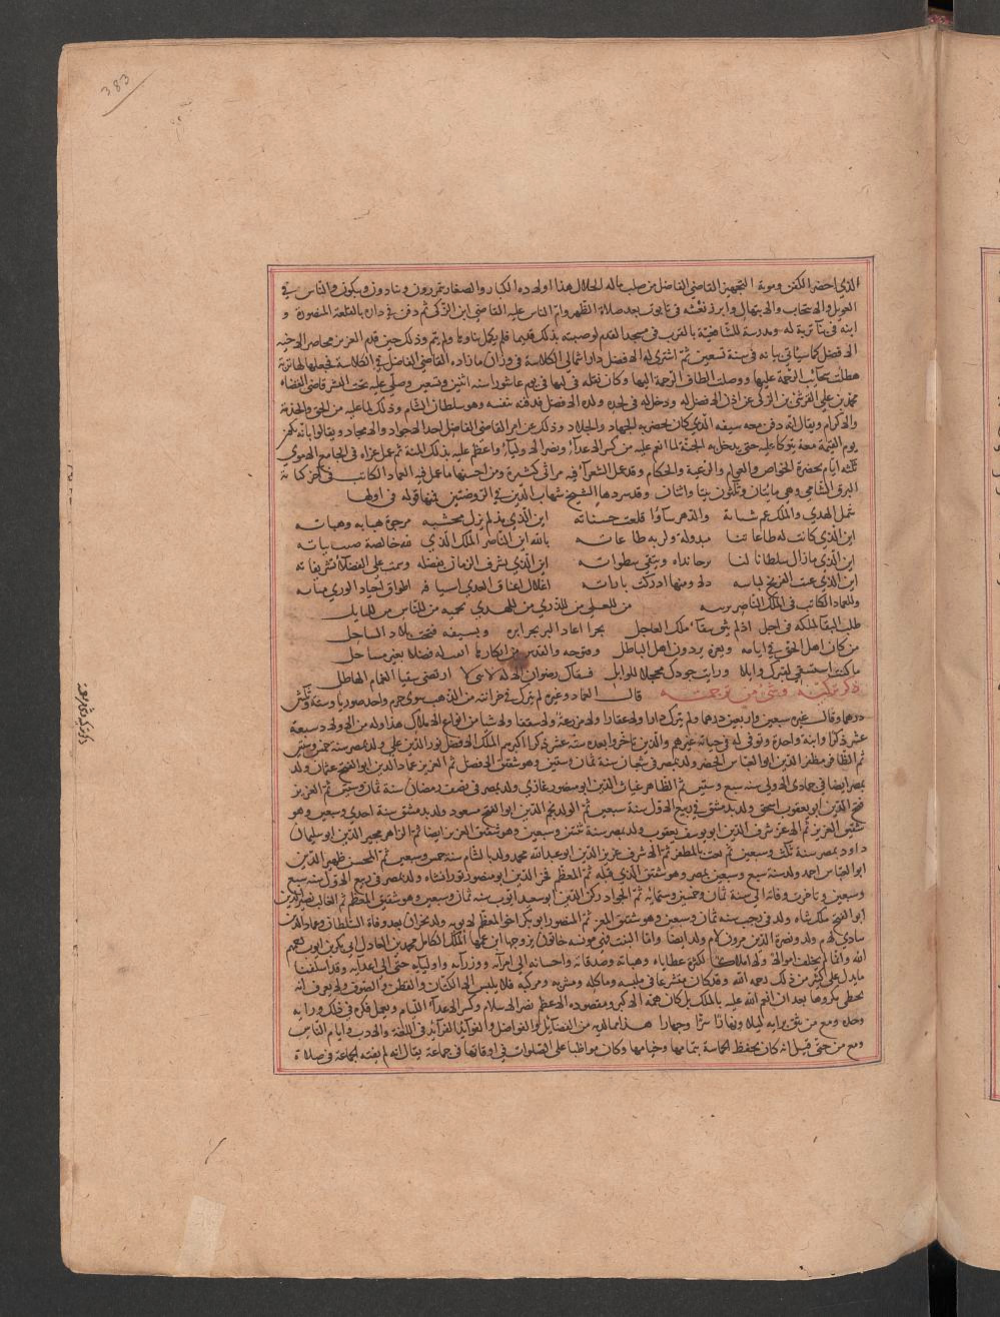 383
الذي احضر الكفن ومونة التجهيز القاضي الفاضل من صلب ماله الحلال هذا واولاده الكبار والصغار يتمررون وينادون ويبكون والناس في
العويل والانتحاب والابتهال وابرز نعشه في تابوت بعد صلاة الظهر وام الناس عليه القاضي ابن الزكي ثم دفن في داره بالقلعة المنصورة و
ابنه في بناء تربة له ومدرسة للشافعية بالقرب من مسجد القدم لوصيته بذلك قديما فلم يكمل بناوها ولم يتم وذلك حين قدم العزيز محاصرا لاخيه
الافضل كما سياتي بيانه في سنة تسعين ثم اشترى له الافضل دارا شمالي الكلاسة في وزان ما زاده القاضي الفاضل في الكلاسة فجعلها تربة
هطلت سحائب الرحمة عليها ووصلت الطاف الرحمة اليها وكان نقله في ليها في يوم عاشوراء سنة اثنين وتسعين وصلى عليه تحت النسر قاضي القضاة
محمد بن علي القرشي بن الزكي عن اذن الافضل له ودخل له في لحده ولده الافضل فدفنه بنفسه وهو سلطان الشام وذلك لما عليه من الحق والخدمة
والاكرام ويقال انه دفن معه سيفه الذي كان يحضر به الجهاد والجلاد وذلك عن امر القاضي الفاضل احد الاجواد والامجاد ويقالوا بانه يكون
يوم القيمة معه يتوكا عليه حتى يدخل به الجنة لما انعم عليه من كسر الاعداء ونصر الاولياء واعظم عليه بذلك المنة ثم عمل عزاه في الجامع الاموي
ثلثة ايام يحضره الخواص والعوام والرعية والحكام وقد عمل الشعراء فيه مراثي كثيرة ومن احسنها ما عمل فيه العماد الكاتب في آخر كتابه
البرق الشامي وهي مايتان وثلثون بيتا واثنان وقد سردها الشيخ شهاب الدين في الروضتين فمنها قوله في اولها
شمل الهدى والملك عم شتاته والدهر ساء واقلعت حسناته اين الذي مذ لم يزل مخشية مرجوة هباته وهباته
اين الذي كانت له طاعاتنا مبذولة ولربه طاعاته بالله اين الناصر الملك الذي لله خالصة صفت نياته
اين الذي ما زال سلطانا لنا يرجى نداه ويتقى سطواته اين الذي شرف الزمان بفضله وسمت على الفضلاء تشريفاته
اين الذي عنت الفرنج لباسه ذلا ومنها ادركت ثاراته اغلال اعناق العدى اسيافه اطواق اجياد الورى مناته
وللعماد الكاتب في الملك الناصر يرثيه من للعلى من للذرى من للهدى يحميه من للباس من للنايل
طلب البقاء لملكه في آجل اذ لم يثق ببقاء ملك العاجل بحر اعاد البر بحرا بره وبسيفه فتحت بلاد الساحل
من كان اهل الحق في ايامه وبعزه يردون اهل الباطل وفتوحه والقدس من ابكارها ابقت له فضلا بغير مساجل
ما كنت استسقي لقبرك وابلا ورايت جودك مخجلا للوابل فسقاك رضوان الاله لانني لا ارتضي سقيا الغمام الهاطل
ذكر تركته وشي من ترجمته قال العماد وغيره لم يترك في خزانته من الذهب سوى جرم واحد صوريا وستة وثلثين
درهما وقال غيره سبعين واربعين درهما ولم يترك دارا ولا عقارا ولا مزرعة ولا سقفا ولا شيا من انواع الاملاك هذا وله من الاولاد سبعة
عشر ذكرا وابنة واحدة وتوفي له في حياته غيرهم والذين تاخروا بعده ستة عشر ذكرا اكبرهم الملك الافضل نور الدين علي ولد بمصر سنة خمس وستين
ثم الظافر مظفر الدين ابو العباس الخضر ولد بمصر في شعبان سنة ثمان وستين وهو شقيق الافضل ثم العزيز عماد الدين ابو الفتح عثمان ولد
بمصر ايضا في جمادى الاولى سنة سبع وستين ثم الظاهر غياث الدين ابو منصور غازي ولد بمصر في نصف رمضان سنة ثمان وستين ثم العزيز
فتح الدين ابو يعقوب اسحق ولد بدمشق في ربيع الاول سنة سبعين ثم الولد نجم الدين ابو الفتح مسعود ولد بدمشق سنة احدى وسبعين وهو
شقيق العزيز ثم الاعز شرف الدين ابو يوسف يعقوب ولد بمصر سنة ثنتين وسبعين وهو شقيق العزيز ايضا ثم الزاهر مجير الدين ابو سليمان
داود بمصر سنة ثلث وسبعين ثم بعث بالمظفر ثم الاشرف عزيز الدين ابو عبد الله محمد ولد بالشام سنة خمس وسبعين ثم المحسن ظهير الدين
ابو العباس احمد ولد سنة سبع وسبعين بمصر وهو شقيق الذي قبله ثم المعظم فخر الدين ابو منصور تورانشاه ولد بمصر في ربيع الاول سنة سبع
وسبعين وتاخرت وفاته الى سنة ثمان وخمسين وستمائة ثم الجواد ركن الدين ابو سعيد ايوب سنة ثمان وسبعين وهو شقيق المعظم ثم الغالب نصير الدين
ابو الفتح ملك شاه ولد في رجب سنة ثمان وسبعين وهو شقيق المعز ثم المنصور ابو بكر اخو المعظم لابويه ولد بحران بعد وفاة السلطان وعماد الدين
شادي لام ولد ونصرة الدين مروان لام ولد ايضا واما البنت فهي مونسة خاتون تزوجها ابن عمها الملك الكامل محمد بن العادل ابي بكر بن ايوب رحمهم
الله وانما لم يخلف اموالا ولا املاكا لكثرة عطاياه وهباته وصدقاته واحسانه الى امرائه ووزرائه واوليائه حتى الى اعدائه وقد اسلفنا
ما يدل على كثير من ذلك رحمه الله وقد كان متشرعا في ملبسه وماكله ومشربه ومركبه فلا يلبس الا الكتان والقطن والصوف ولا يعرف انه
تخطى مكروها بعد ان انعم الله عليه بالملك بل كان همه الاكبر ومقصوده الاعظم نصر الاسلام وكسر الاعداء اللئام ويعمل فكره في ذلك ورايه
وحده ومع من يثق برايه ليلا ونهارا سرا وجهارا هذا مع ما لديه من الفضائل والفواضل والفوائد الفرائد في اللغة والادب وايام الناس
ومع من حتى قيل انه كان يحفظ الحماسة بتمامها وختامها وكان مواظبا على الصلوات في اوقاتها في جماعة يقال انه لم تفته الجماعة في صلاة